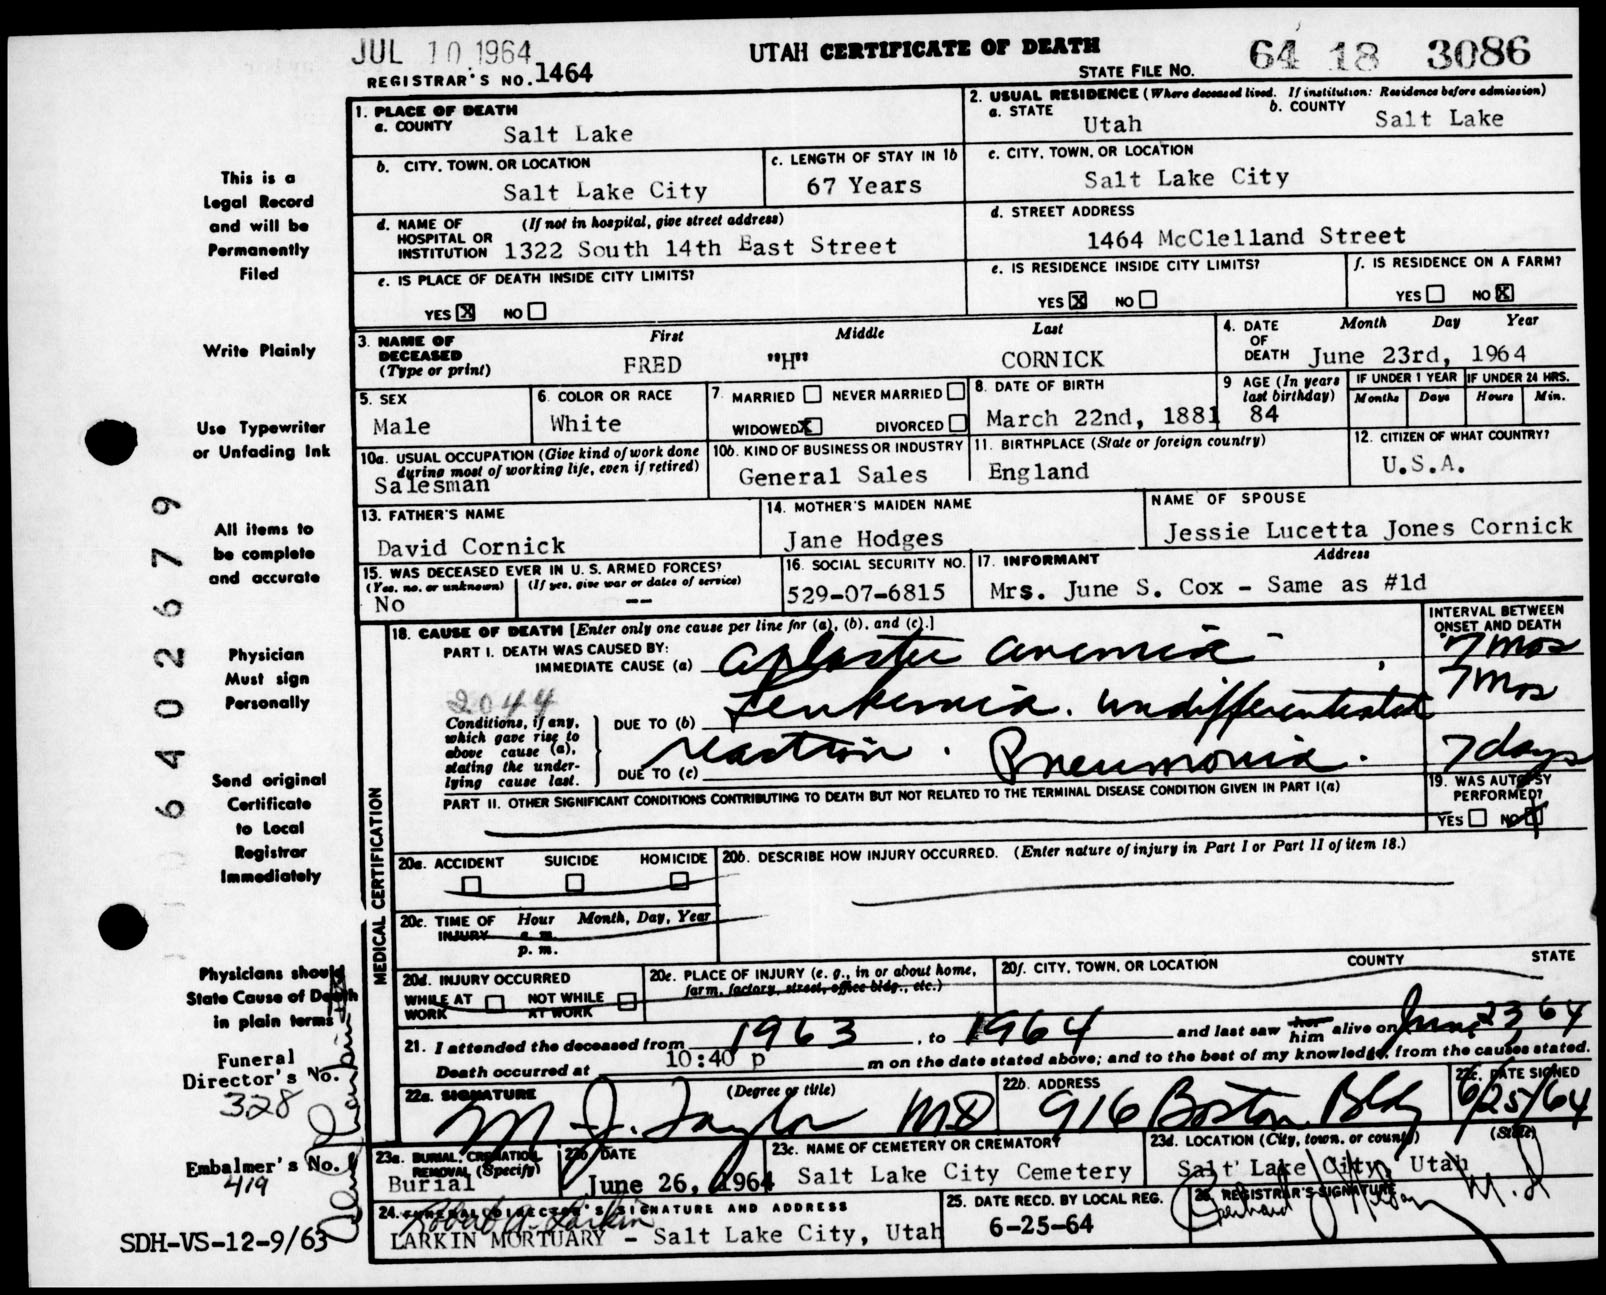 JUL 10 1964
UTAH CERTIFICATE OF DEATH
64 18 3086
REGISTRAR'S NO. 1464
STATE FILE NO.
1. PLACE OF DEATH
a. COUNTY Salt Lake
2. USUAL RESIDENCE (Where deceased lived. If institution: Residence before admission)
a. STATE Utah
b. COUNTY Salt Lake
b. CITY, TOWN, OR LOCATION
Salt Lake City
c. LENGTH OF STAY IN 1b
67 Years
c. CITY, TOWN, OR LOCATION
Salt Lake City
d. NAME OF HOSPITAL OR INSTITUTION (If not in hospital, give street address)
1322 South 14th East Street
d. STREET ADDRESS
1464 McClelland Street
e. IS PLACE OF DEATH INSIDE CITY LIMITS?
YES X NO
e. IS RESIDENCE INSIDE CITY LIMITS?
YES X NO
f. IS RESIDENCE ON A FARM?
YES NO X
3. NAME OF DECEASED (Type or print)
First Middle Last
FRED "H" CORNICK
4. DATE OF DEATH
Month Day Year
June 23rd, 1964
5. SEX
Male
6. COLOR OR RACE
White
7. MARRIED NEVER MARRIED
WIDOWED X DIVORCED
8. DATE OF BIRTH
March 22nd, 1881
9 AGE (In years last birthday)
84
IF UNDER 1 YEAR
Months Days
IF UNDER 24 HRS.
Hours Min.
10a. USUAL OCCUPATION (Give kind of work done during most of working life, even if retired)
Salesman
10b. KIND OF BUSINESS OR INDUSTRY
General Sales
11. BIRTHPLACE (State or foreign country)
England
12. CITIZEN OF WHAT COUNTRY?
U.S.A.
13. FATHER'S NAME
David Cornick
14. MOTHER'S MAIDEN NAME
Jane Hodges
NAME OF SPOUSE
Jessie Lucetta Jones Cornick
15. WAS DECEASED EVER IN U. S. ARMED FORCES?
(Yes, no, or unknown) (If yes, give war or dates of service)
No --
16. SOCIAL SECURITY NO.
529-07-6815
17. INFORMANT Address
Mrs. June S. Cox - Same as #1d
MEDICAL CERTIFICATION
18. CAUSE OF DEATH [Enter only one cause per line for (a), (b), and (c).]
INTERVAL BETWEEN ONSET AND DEATH
PART I. DEATH WAS CAUSED BY:
IMMEDIATE CAUSE (a) aplastic anemia 7 mos
2044
Conditions, if any, which gave rise to above cause (a), stating the underlying cause last.
DUE TO (b) Leukemia. undifferentiated 7 mos
DUE TO (c) reaction. Pneumonia. 7 days
PART II. OTHER SIGNIFICANT CONDITIONS CONTRIBUTING TO DEATH BUT NOT RELATED TO THE TERMINAL DISEASE CONDITION GIVEN IN PART I(a)
19. WAS AUTOPSY PERFORMED?
YES NO X
20a. ACCIDENT SUICIDE HOMICIDE
20b. DESCRIBE HOW INJURY OCCURRED. (Enter nature of injury in Part I or Part II of item 18.)
20c. TIME OF INJURY Hour Month, Day, Year
a. m.
p. m.
20d. INJURY OCCURRED
WHILE AT WORK NOT WHILE AT WORK
20e. PLACE OF INJURY (e. g., in or about home, farm, factory, street, office bldg., etc.)
20f. CITY, TOWN, OR LOCATION COUNTY STATE
21. I attended the deceased from 1963, to 1964 and last saw her him alive on June 23, 64
Death occurred at 10:40 p m on the date stated above; and to the best of my knowledge, from the causes stated.
22a. SIGNATURE (Degree or title)
M. J. Taylor MD
22b. ADDRESS
916 Boston Bldg
22c. DATE SIGNED
6/25/64
23a. BURIAL, CREMATION, REMOVAL (Specify)
Burial
23b DATE
June 26, 1964
23c. NAME OF CEMETERY OR CREMATORY
Salt Lake City Cemetery
23d. LOCATION (City, town, or county) (State)
Salt Lake City, Utah
24. FUNERAL DIRECTOR'S SIGNATURE AND ADDRESS
Robert A. Larkin
LARKIN MORTUARY - Salt Lake City, Utah
25. DATE RECD. BY LOCAL REG.
6-25-64
26. REGISTRAR'S SIGNATURE
M.D
This is a
Legal Record
and will be
Permanently
Filed
Write Plainly
Use Typewriter
or Unfading Ink
All items to
be complete
and accurate
Physician
Must sign
Personally
Send original
Certificate
to Local
Registrar
Immediately
Physicians should
State Cause of Death
in plain terms
Funeral
Director's No.
328
Embalmer's No.
419
SDH-VS-12-9/63
6402679